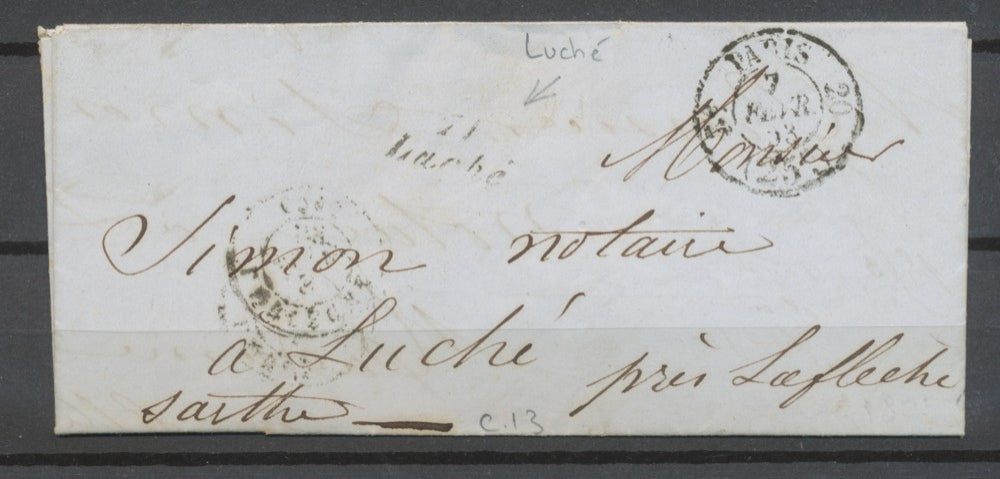 Luché
PARIS
7
FEVR
53
(25)
71
Luché
Monsieur
Simon notaire
a Luché près Lafleche
Sarthe
C.13